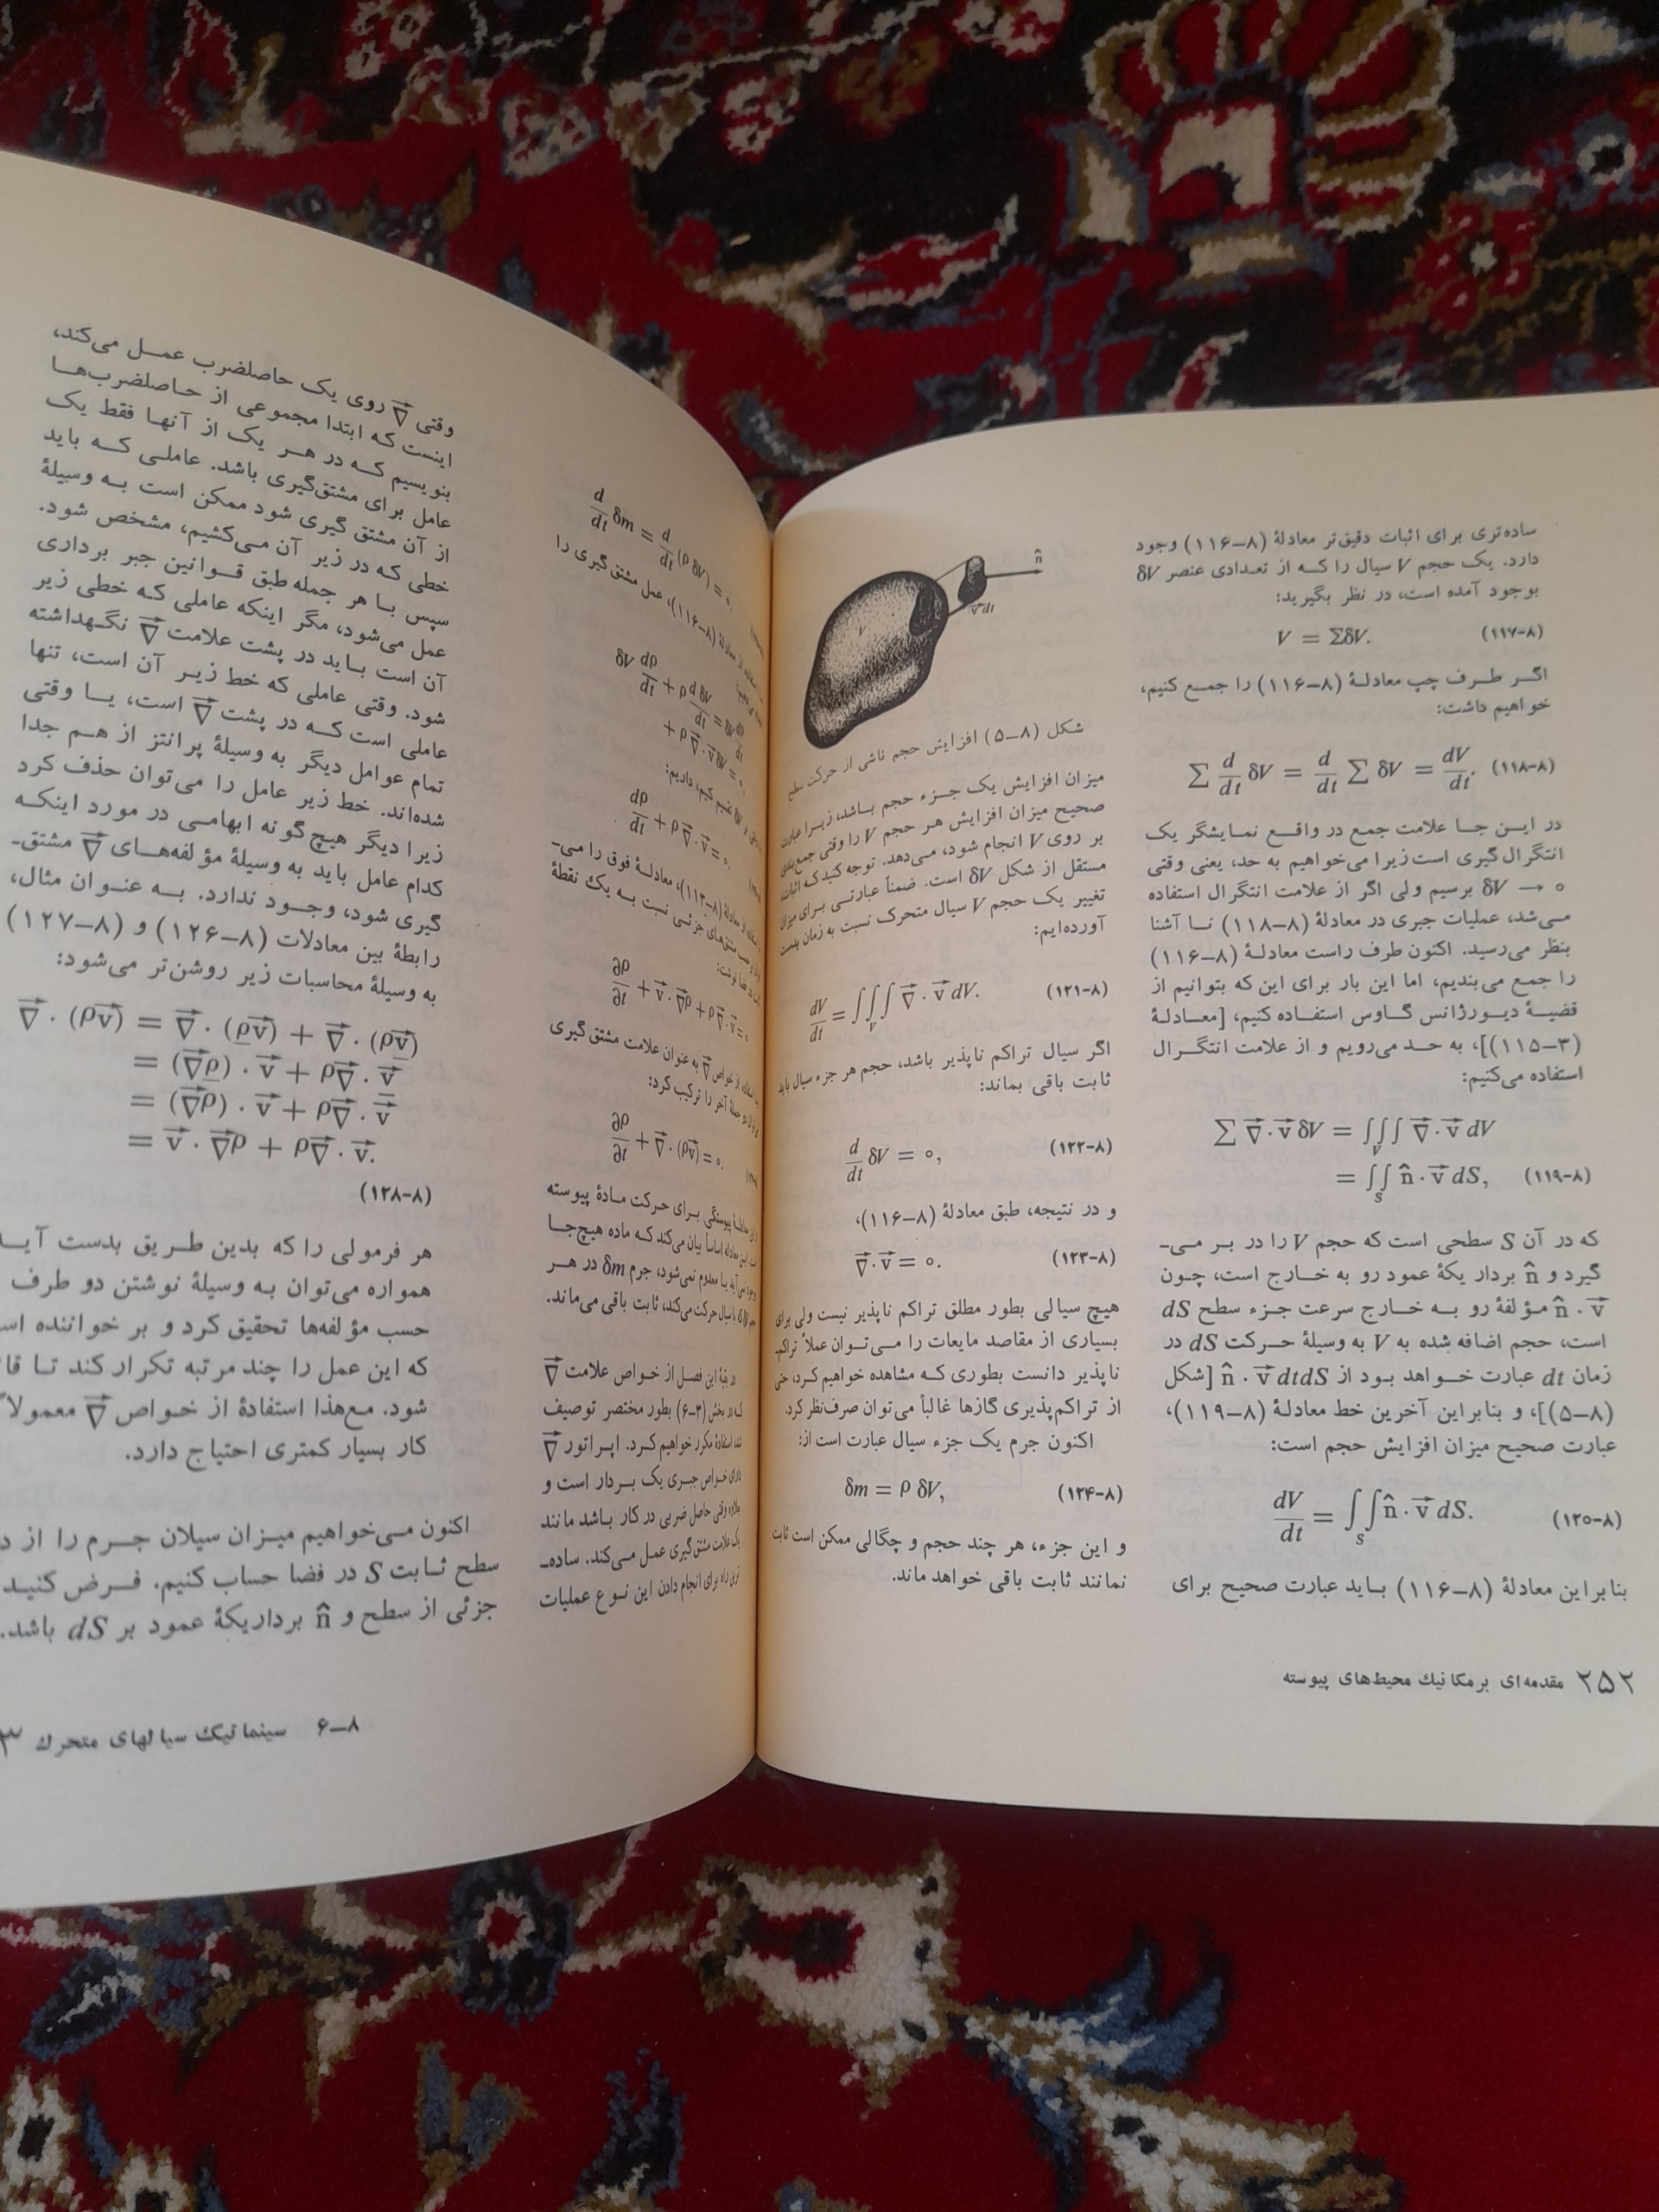 ساده‌تری برای اثبات دقیق‌تر معادلهٔ (۸–۱۱۶) وجود
دارد. یک حجم V سیال را کـه از تعـدادی عنصر δV
بوجود آمده است، در نظر بگیرید:
V = ΣδV. (۸–۱۱۷)
اگـر طـرف چپ معادلـهٔ (۸–۱۱۶) را جمـع کنیم،
خواهیم داشت:
∑ d/dt δV = d/dt ∑ δV = dV/dt. (۸–۱۱۸)
در ایـن جـا علامت جمع در واقـع نمـایشگر یک
انتگرال‌گیری است زیرا می‌خواهیم به حد، یعنی وقتی
δV → ۰ برسیم ولی اگر از علامت انتگرال استفاده
می‌شد، عملیات جبری در معادلهٔ (۸–۱۱۸) نـا آشنا
بنظر می‌رسید. اکنون طرف راست معادلـهٔ (۸–۱۱۶)
را جمع می‌بندیم، اما این بار برای این که بتوانیم از
قضیـهٔ دیـورژانس گـاوس استفـاده کنیم، [معـادلـهٔ
(۳–۱۱۵)]، به حـد می‌رویم و از علامت انتگـرال
استفاده می‌کنیم:
∑ ∇⃗·v⃗ δV = ∫∫∫_V ∇⃗·v⃗ dV
= ∫∫_S n̂·v⃗ dS, (۸–۱۱۹)
که در آن S سطحی است که حجم V را در بـر مـی‌ـ
گیرد و n̂ بردار یکهٔ عمود رو به خـارج است، چـون
n̂·v⃗ مـؤلفهٔ رو بـه خـارج سرعت جـزء سطح dS
است، حجم اضافه شده به V به وسیلهٔ حـرکت dS در
زمان dt عبارت خـواهد بـود از n̂·v⃗ dtdS [شکل
(۸–۵)]، و بنابراین آخرین خط معادلـهٔ (۸–۱۱۹)،
عبارت صحیح میزان افزایش حجم است:
dV/dt = ∫∫_S n̂·v⃗ dS. (۸–۱۲۰)
بنابراین معادلهٔ (۸–۱۱۶) بـاید عبارت صحیح برای
n̂
v⃗ dt
V
شکل (۸–۵) افزایش حجم ناشی از حرکت سطح
میزان افزایش یک جـزء حجم بـاشد، زیـرا عبارت
صحیح میزان افزایش هـر حجم V را وقتی
بر روی V انجام شود، مـی‌دهد. توجه کنید کـه اثبات
مستقل از شکل δV است. ضمناً عبارتـی بـرای میزان
تغییر یک حجم V سیال متحرک نسبت به زمان بدست
آورده‌ایم:
dV/dt = ∫∫∫_V ∇⃗·v⃗ dV. (۸–۱۲۱)
اگر سیال تراکم ناپذیر باشد، حجم هر جزء سیال باید
ثابت باقی بماند:
d/dt δV = ۰, (۸–۱۲۲)
و در نتیجه، طبق معادلهٔ (۸–۱۱۶)،
∇⃗·v⃗ = ۰. (۸–۱۲۳)
هیچ سیالی بطور مطلق تراکم ناپذیر نیست ولی برای
بسیاری از مقاصد مایعات را مـی‌تـوان عملاً تراکم‌ـ
ناپذیر دانست بطوری کـه مشاهده خواهیم کرد، حتی
از تراکم‌پذیری گازها غالباً می‌توان صرف‌نظر کرد.
اکنون جرم یک جزء سیال عبارت است از:
δm = ρ δV, (۸–۱۲۴)
و این جزء، هر چند حجم و چگالی ممکن است ثابت
نمانند ثابت باقی خواهد ماند.
۲۵۲ مقدمه‌ای بر مکانیک محیط‌های پیوسته
d/dt δm = d/dt (ρ δV) = ۰.
معادلهٔ (۸–۱۱۶)، عمل مشتق‌گیری را
δV dρ/dt + ρ d δV/dt = δV dρ/dt
+ ρ ∇⃗·v⃗ δV = ۰,
تقسیم کنیم، داریم:
dρ/dt + ρ ∇⃗·v⃗ = ۰.
از معادلهٔ (۸–۱۱۳)، معادلـهٔ فوق را مـی‌ـ
مشتق‌های جزئی نسبت بـه یک نقطهٔ
نوشت:
∂ρ/∂t + v⃗·∇⃗ρ + ρ∇⃗·v⃗ = ۰
استفاده از خواص ∇⃗ به عنوان علامت مشتق‌گیری
دو جملهٔ آخر را ترکیب کرد:
∂ρ/∂t + ∇⃗·(ρv⃗) = ۰.
معادلـهٔ پیوستگی بـرای حرکت مـادهٔ پیوسته
این معادله اساساً بیان می‌کند کـه ماده هیچ‌جـا
بوجود نمی‌آید یـا معدوم نمی‌شود، جرم δm در هـر
سیال حرکت می‌کند، ثابت باقی می‌مـاند.
در بقیهٔ این فصـل از خـواص علامت ∇⃗
کـه در بخش (۳–۶) بطور مختصر توصیف
شد، استفادهٔ مکرر خواهیم کـرد. اپـراتور ∇⃗
دارای خـواص جبـری یک بـردار است و
علاوه وقتی حاصل ضربی در کار بـاشد مـانند
یک علامت مشتق‌گیری عمـل مـی‌کند. ساده‌ـ
ترین راه برای انجام دادن این نـوع عملیات
وقتی ∇⃗ روی یک حاصلضرب عمـل می‌کند،
اینست کـه ابتدا مجموعی از حـاصلضرب‌هـا
بنویسیم کـه در هـر یک از آنهـا فقط یک
عامل برای مشتق‌گیری باشد. عاملـی کـه باید
از آن مشتق گیری شود ممکن است بـه وسیلهٔ
خطی که در زیر آن مـی‌کشیم، مشخص شود.
سپس بـا هر جمله طبق قـوانین جبر برداری
عمل می‌شود، مگر اینکه عاملی که خطی زیر
آن است بـاید در پشت علامت ∇⃗ نگـهداشته
شود. وقتی عاملی که خط زیـر آن است، تنها
عاملی است کـه در پشت ∇⃗ است، یـا وقتی
تمام عوامل دیگر به وسیلهٔ پرانتز از هـم جدا
شده‌اند. خط زیر عامل را می‌توان حذف کرد
زیرا دیگر هیچ گونه ابهامـی در مورد اینکـه
کدام عامل باید به وسیلهٔ مؤلفه‌هـای ∇⃗ مشتق‌ـ
گیری شود، وجـود ندارد. بـه عنـوان مثال،
رابطهٔ بین معادلات (۸–۱۲۶) و (۸–۱۲۷)
به وسیلهٔ محاسبات زیر روشن‌تر می‌شود:
∇⃗·(ρv⃗) = ∇⃗·(ρ̲v⃗) + ∇⃗·(ρv̲⃗)
= (∇⃗ρ̲)·v⃗ + ρ∇⃗·v̲⃗
= (∇⃗ρ)·v⃗ + ρ∇⃗·v⃗
= v⃗·∇⃗ρ + ρ∇⃗·v⃗.
(۸–۱۲۸)
هر فرمولی را که بدین طـریق بدست آیـد
همواره می‌توان بـه وسیلهٔ نوشتن دو طرف
حسب مؤلفه‌ها تحقیق کرد و بر خواننده
که این عمل را چند مرتبه تکرار کند تـا
شود. مـع‌هذا استفادهٔ از خـواص ∇⃗ معمولاً
کار بسیار کمتری احتیاج دارد.
اکنون مـی‌خواهیم میـزان سیلان جـرم را از
سطح ثـابت S در فضا حساب کنیم. فـرض کنیـد
جزئی از سطح و n̂ برداریکهٔ عمود بر dS باشد.
۸–۶ سینماتیک سیالهای متحرک